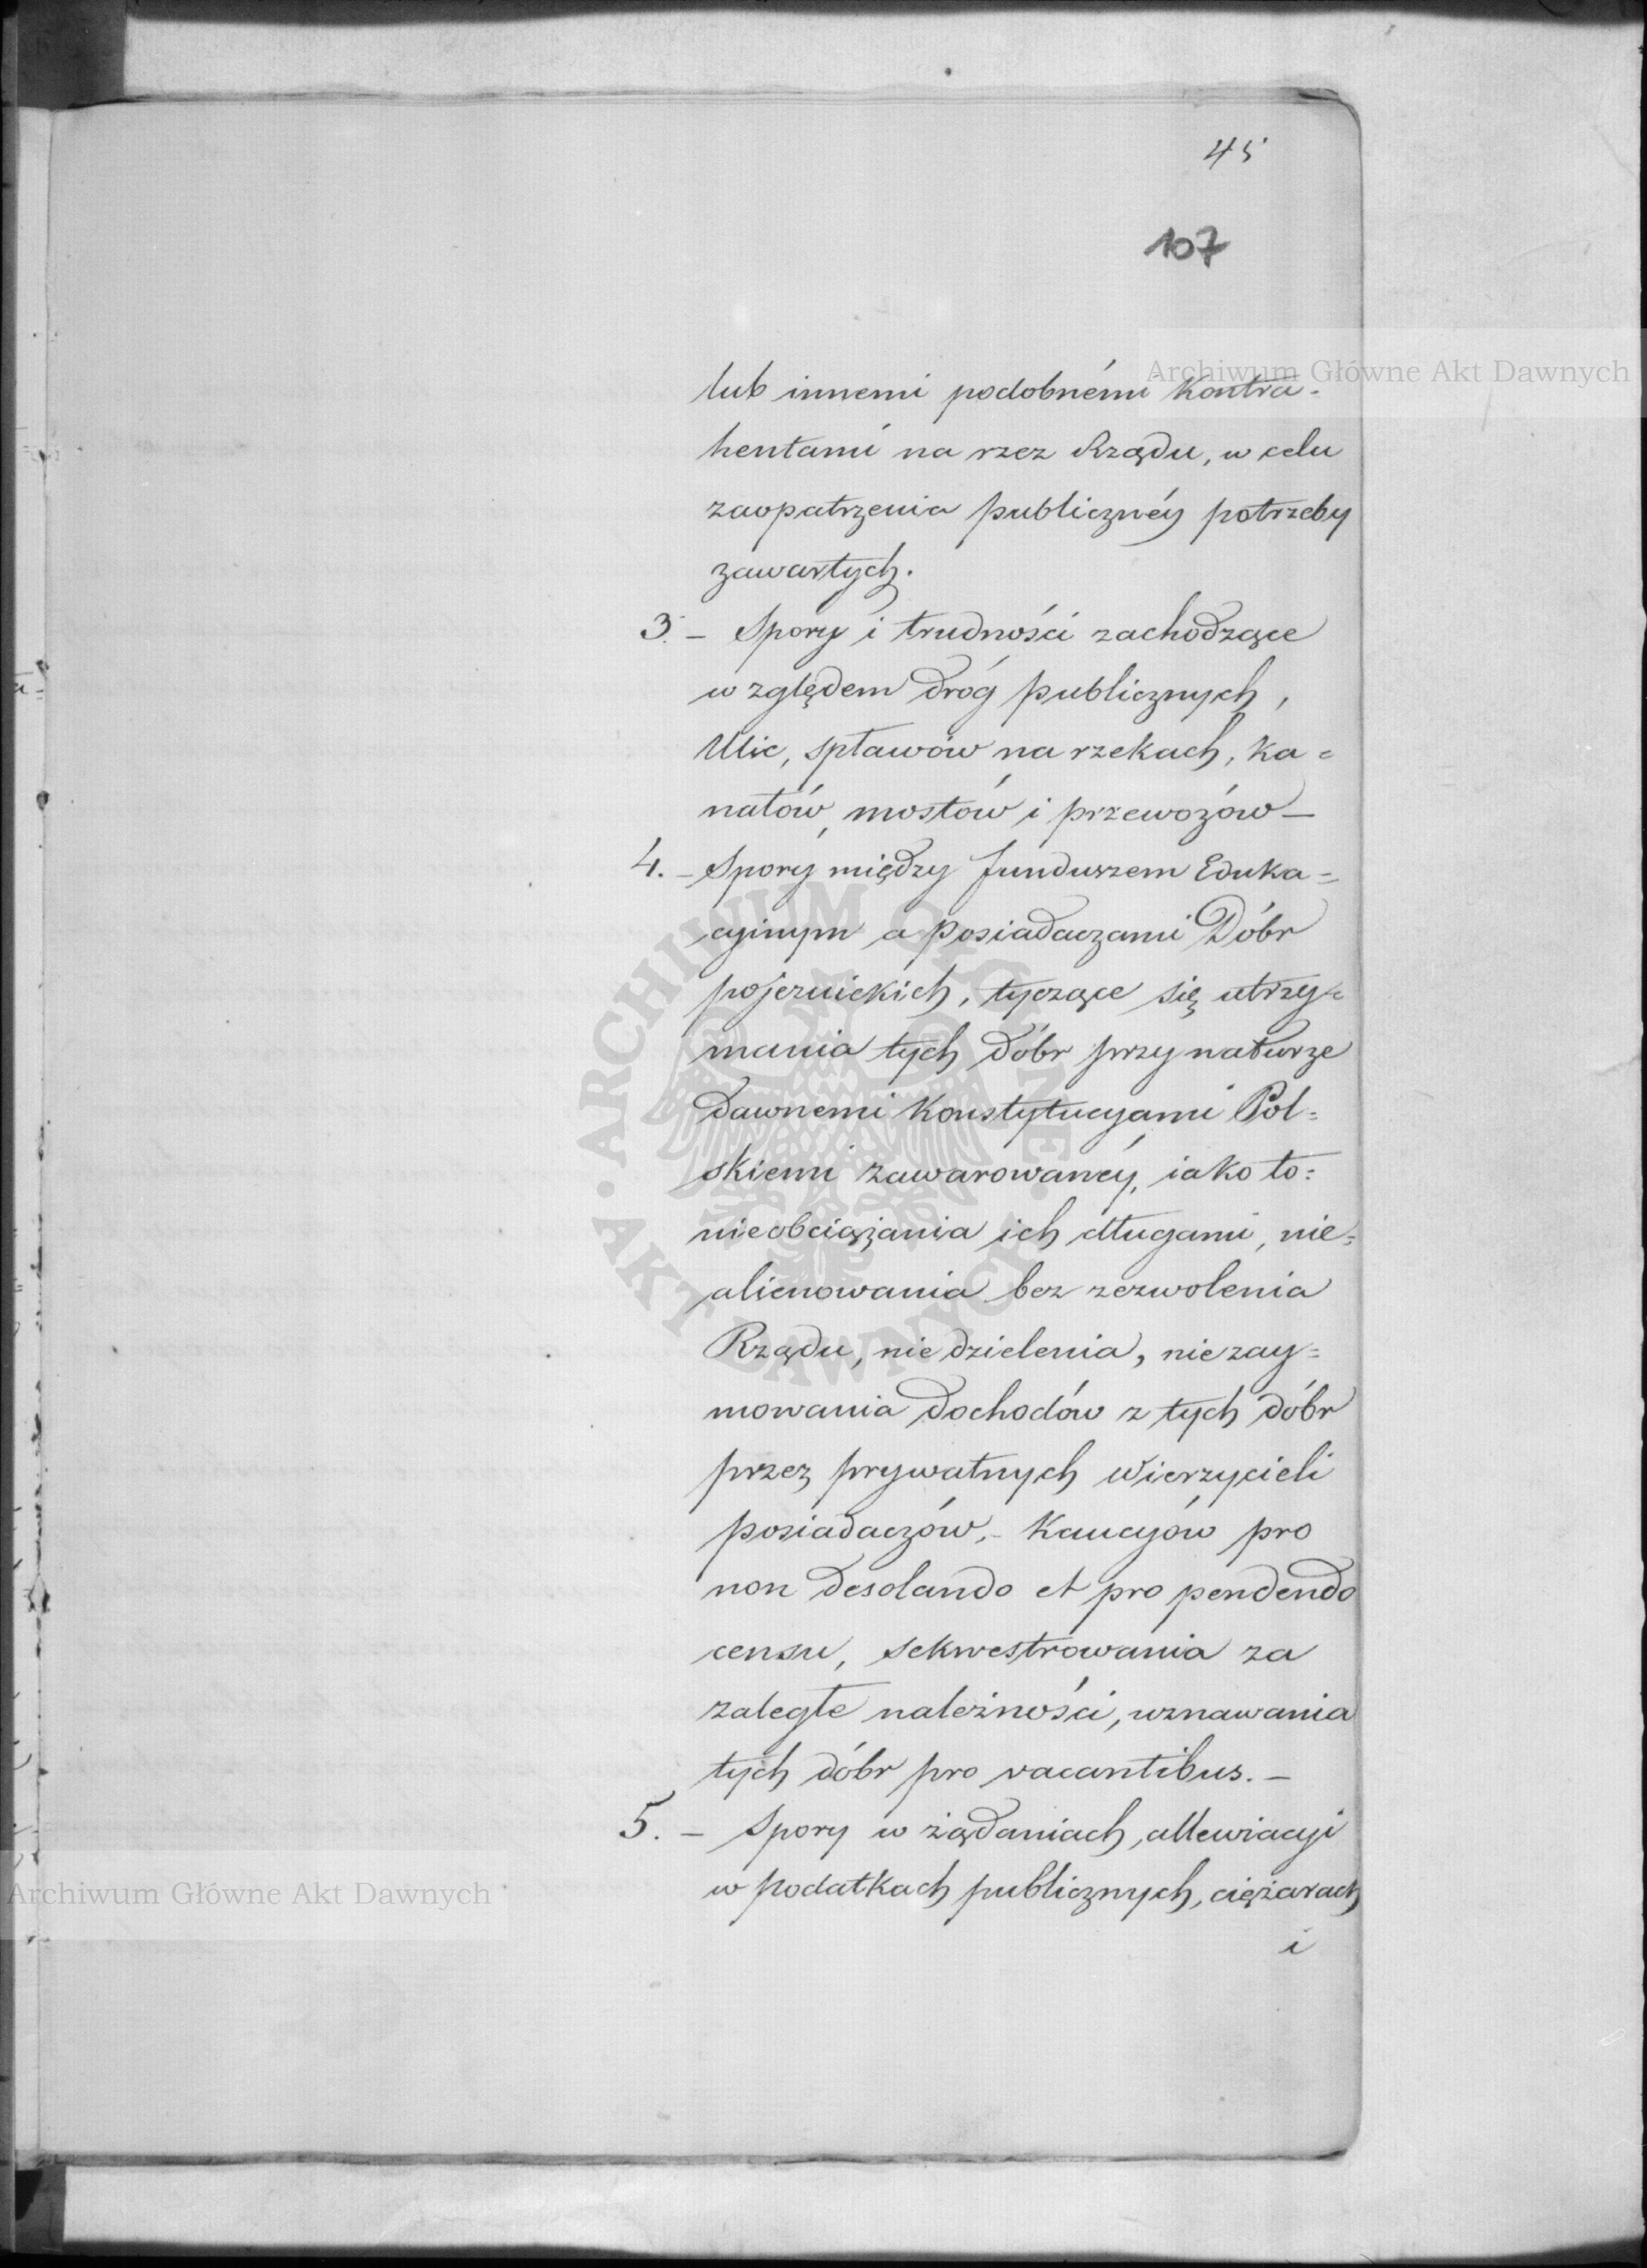 45
107
lub innemi podobnémi Kontra-
hentami na rzez Rządu, w celu
zaopatrzenia publicznéy potrzeby
zawartych.
3. – Spory i trudności zachodzące
względem dróg publicznych,
Ulic, spławów na rzekach, ka=
nałów, mostów i przewozów –
4. – Spory między funduszem Eduka=
cyinym a posiadaczami Dóbr
pojezuickich, tyczące się utrzy=
mania tych dóbr przy naturze
dawnemi Konstytucyami Pol=
skiemi zawarowanéy, iako to:
nieobciążania ich długami, nie=
alienowania bez zezwolenia
Rządu, niedzielenia, niezay=
mowania dochodów z tych dóbr
przez prywatnych Wierzycieli
posiadaczów, – Kaucyów pro
non desolando et pro pendendo
censu, sekwestrowania za
zaległe należności, uznawania
tych dóbr pro vacantibus. –
5. – Spory w żądaniach, allewiacyi
w podatkach publicznych, ciężarach
i
Archiwum Główne Akt Dawnych
Archiwum Główne Akt Dawnych
ARCHIWUM GŁÓWNE • AKT DAWNYCH •